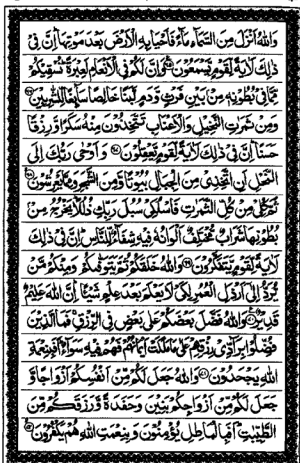 وَاللّٰهُ اَنْزَلَ مِنَ السَّمَآءِ مَآءً فَاَحْيَا بِهِ الْاَرْضَ بَعْدَ مَوْتِهَا اِنَّ فِيْ
ذٰلِكَ لَاٰيَةً لِّقَوْمٍ يَّسْمَعُوْنَ ۝ وَاِنَّ لَكُمْ فِي الْاَنْعَامِ لَعِبْرَةً نُسْقِيْكُمْ
مِّمَّا فِيْ بُطُوْنِهٖ مِنْۢ بَيْنِ فَرْثٍ وَّدَمٍ لَّبَنًا خَالِصًا سَآئِغًا لِّلشّٰرِبِيْنَ ۝
وَمِنْ ثَمَرٰتِ النَّخِيْلِ وَالْاَعْنَابِ تَتَّخِذُوْنَ مِنْهُ سَكَرًا وَّرِزْقًا
حَسَنًا اِنَّ فِيْ ذٰلِكَ لَاٰيَةً لِّقَوْمٍ يَّعْقِلُوْنَ ۝ وَاَوْحٰى رَبُّكَ اِلَى
النَّحْلِ اَنِ اتَّخِذِيْ مِنَ الْجِبَالِ بُيُوْتًا وَّمِنَ الشَّجَرِ وَمِمَّا يَعْرِشُوْنَ ۝
ثُمَّ كُلِيْ مِنْ كُلِّ الثَّمَرٰتِ فَاسْلُكِيْ سُبُلَ رَبِّكِ ذُلُلًا يَخْرُجُ مِنْۢ
بُطُوْنِهَا شَرَابٌ مُّخْتَلِفٌ اَلْوَانُهٗ فِيْهِ شِفَآءٌ لِّلنَّاسِ اِنَّ فِيْ ذٰلِكَ
لَاٰيَةً لِّقَوْمٍ يَّتَفَكَّرُوْنَ ۝ وَاللّٰهُ خَلَقَكُمْ ثُمَّ يَتَوَفّٰىكُمْ وَمِنْكُمْ مَّنْ
يُّرَدُّ اِلٰٓى اَرْذَلِ الْعُمُرِ لِكَيْ لَا يَعْلَمَ بَعْدَ عِلْمٍ شَيْئًا اِنَّ اللّٰهَ عَلِيْمٌ
قَدِيْرٌ ۝ وَاللّٰهُ فَضَّلَ بَعْضَكُمْ عَلٰى بَعْضٍ فِي الرِّزْقِ فَمَا الَّذِيْنَ
فُضِّلُوْا بِرَآدِّيْ رِزْقِهِمْ عَلٰى مَا مَلَكَتْ اَيْمَانُهُمْ فَهُمْ فِيْهِ سَوَآءٌ اَفَبِنِعْمَةِ
اللّٰهِ يَجْحَدُوْنَ ۝ وَاللّٰهُ جَعَلَ لَكُمْ مِّنْ اَنْفُسِكُمْ اَزْوَاجًا وَّ
جَعَلَ لَكُمْ مِّنْ اَزْوَاجِكُمْ بَنِيْنَ وَحَفَدَةً وَّرَزَقَكُمْ مِّنَ
الطَّيِّبٰتِ اَفَبِالْبَاطِلِ يُؤْمِنُوْنَ وَبِنِعْمَتِ اللّٰهِ هُمْ يَكْفُرُوْنَ ۝